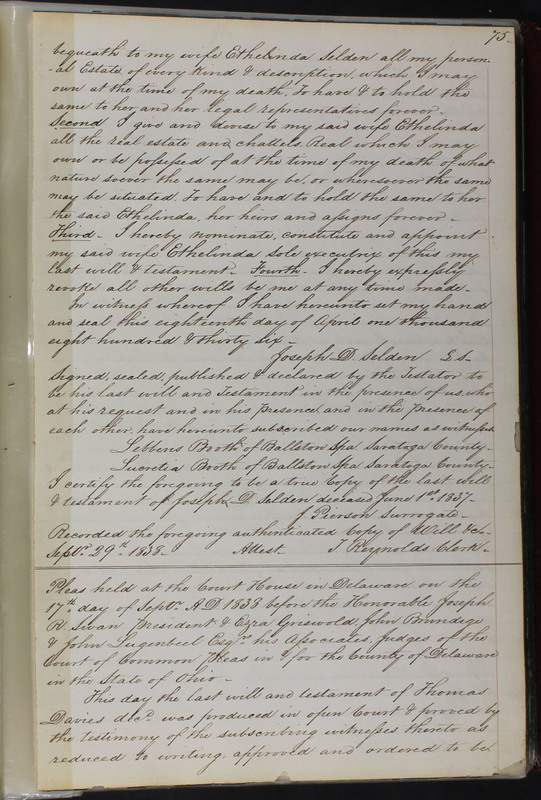 75.
bequeath to my wife Ethelinda Selden all my person-
-al Estate, of every kind & description, which I may
own at the time of my death, To have & to hold the
same to her, and her legal representatives forever.-
Second I give and devise to my said wife Ethelinda
all the real estate and chattels Real which I may
own or be possessed of at the time of my death of what
nature soever the same may be, or wheresoever the same
may be situated. To have and to hold the same to her
the said Ethelinda, her heirs and assigns forever.-
Third.- I hereby nominate, constitute and appoint
my said wife Ethelinda sole executrix of this my
last will & testament- Fourth.- I hereby expressly
revoke all other wills be me at any time made.-
In witness whereof I have hereunto set my hand
and seal this eighteenth day of April one thousand
eight hundred & thirty six.-
Joseph D. Selden L.s.
Signed, sealed, published & declared by the Testator to
be his last will and Testament in the presence of us, who
at his request and in his presence, and in the presence of
each other, have hereunto subscribed our names as witnesses.
Lebbeus Booth, of Ballston Spa Saratoga County-
Lucretia Booth of Ballston Spa Saratoga County-
I certify the foregoing to be a true Copy of the last will
& testament of Joseph D. Selden deceased, June 1st 1837.-
J Pierson Surrogate.-
Recorded the foregoing authenticated Copy of Will &c.
Septr. 29th 1838. Attest. T Reynolds Clerk.-
Pleas held at the Court House in Delaware on the
17th day of Septr. A.D 1838 before the Honorable Joseph
R. Swan President & Ezra Griswold, John Brundige
& John Lugenbeel Esqrs. his Associates, judges of the
Court of Common Pleas in & for the County of Delaware
in the State of Ohio.-
This day the last will and testament of Thomas
Davies decd. was produced in open Court & proved by
the testimony of the subscribing witnesses thereto as
reduced to writing, approved and ordered to be